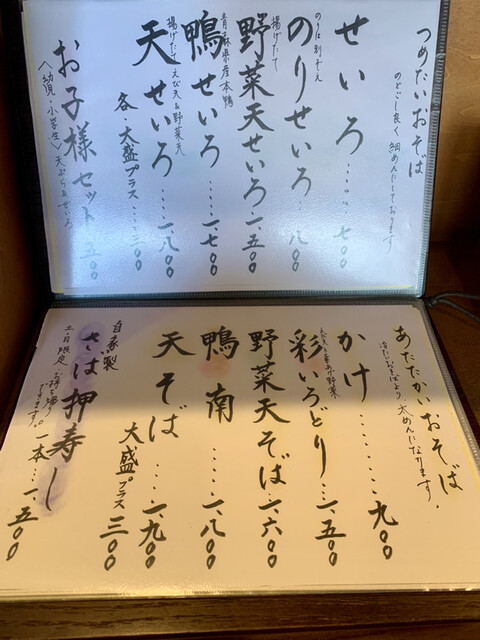 つめたいおそば
のどごし良く細めんにしております。
せいろ……七〇〇
のりせいろ…八〇〇
揚げたて
野菜天せいろ一、五〇〇
青森県産本鴨
鴨せいろ……一、七〇〇
揚げたてえび天&野菜天
天せいろ……一、八〇〇
各・大盛プラス……三〇〇
お子様セット…五〇〇
〈幼児・小学生〉天ぷら&せいろ
あたたかいおそば
冷たいおそばより、太めんになります。
かけ………九〇〇
彩いろどり…一、五〇〇
野菜天そば…一、六〇〇
鴨南……一、八〇〇
天そば……一、九〇〇
大盛プラス三〇〇
自家製
さば押寿し
土日限定
一本…一、五〇〇